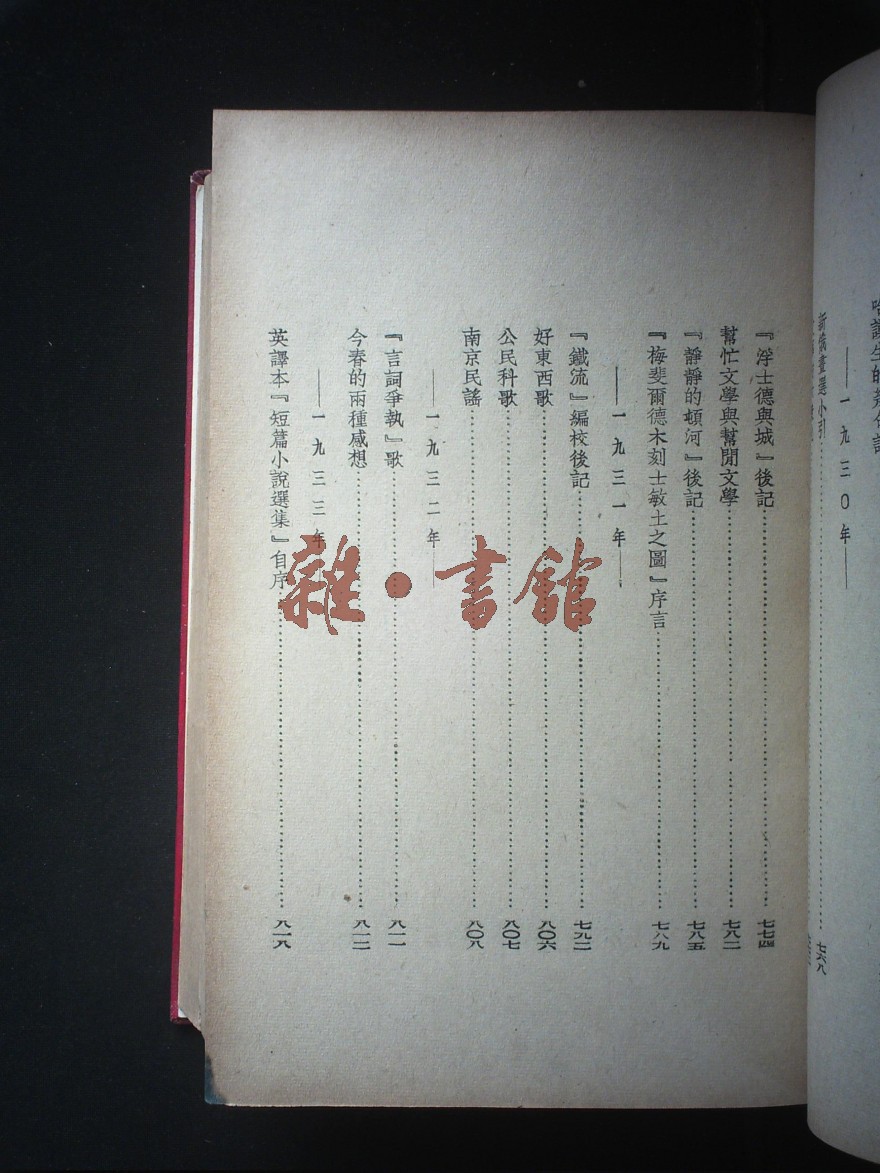 一九三〇年
新俄畫選小引
『浮士德與城』後記 七七四
幫忙文學與幫閒文學 七八二
『靜靜的頓河』後記 七八五
『梅斐爾德木刻士敏土之圖』序言 七八九
——一九三一年——
『鐵流』編校後記 七九二
好東西歌 八〇六
公民科歌 八〇七
南京民謠 八〇八
——一九三二年——
『言詞爭執』歌 八一一
今春的兩種感想 八一二
——一九三三年
英譯本『短篇小說選集』自序 八一八
雜·書館